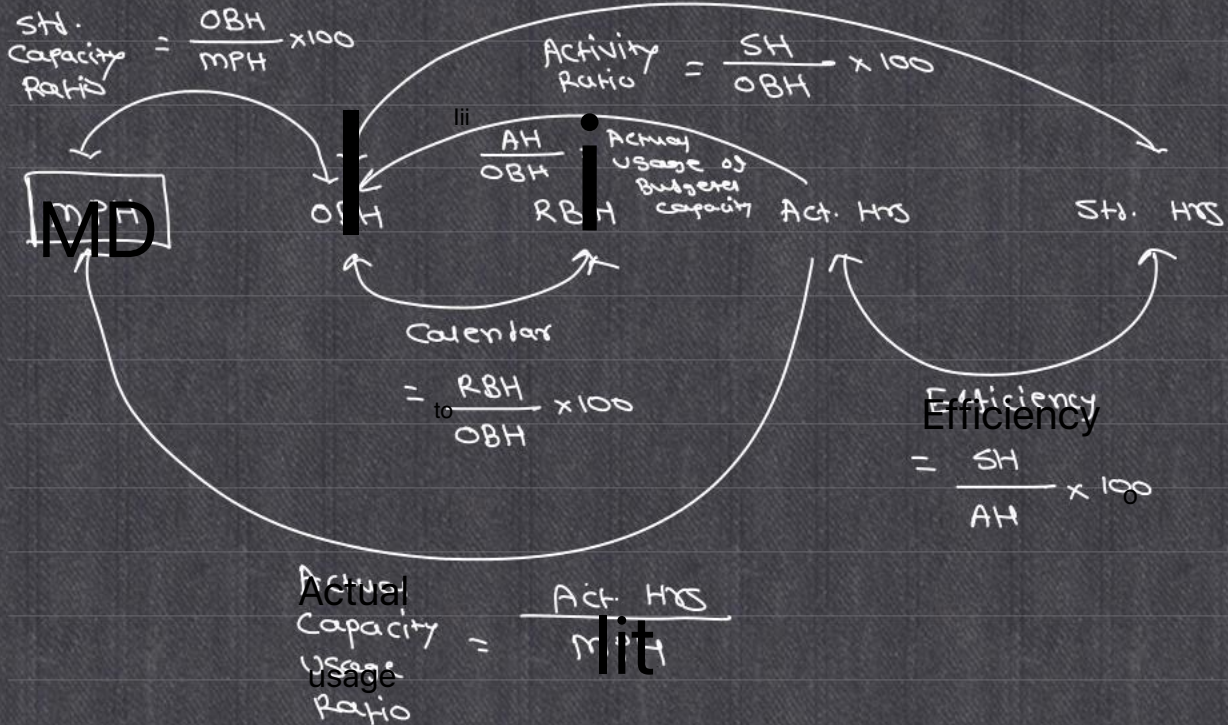 Std.
Capacity
Ratio
= OBH / MPH ×100
Activity
Ratio
= SH / OBH × 100
Iii
AH / OBH
Actual
Usage of
Budgeted
Capacity
MPH
MD
OBH
RBH
Act. Hrs
Std. Hrs
Calendar
= RBH / OBH ×100
to
Efficiency
Efficiency
= SH / AH × 100
o
Actual
Actual
Capacity
Usage
usage
Ratio
= Act. Hrs / MPH
lit
i